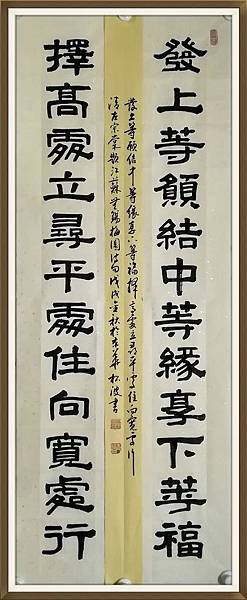 發上等願結中等緣享下等福
擇高處立尋平處住向寬處行
發上等願結中等緣享下等福擇高處立尋平處住向寬處行
清左宗棠題江蘇無錫梅園詩句戊戌金秋於京華松波書